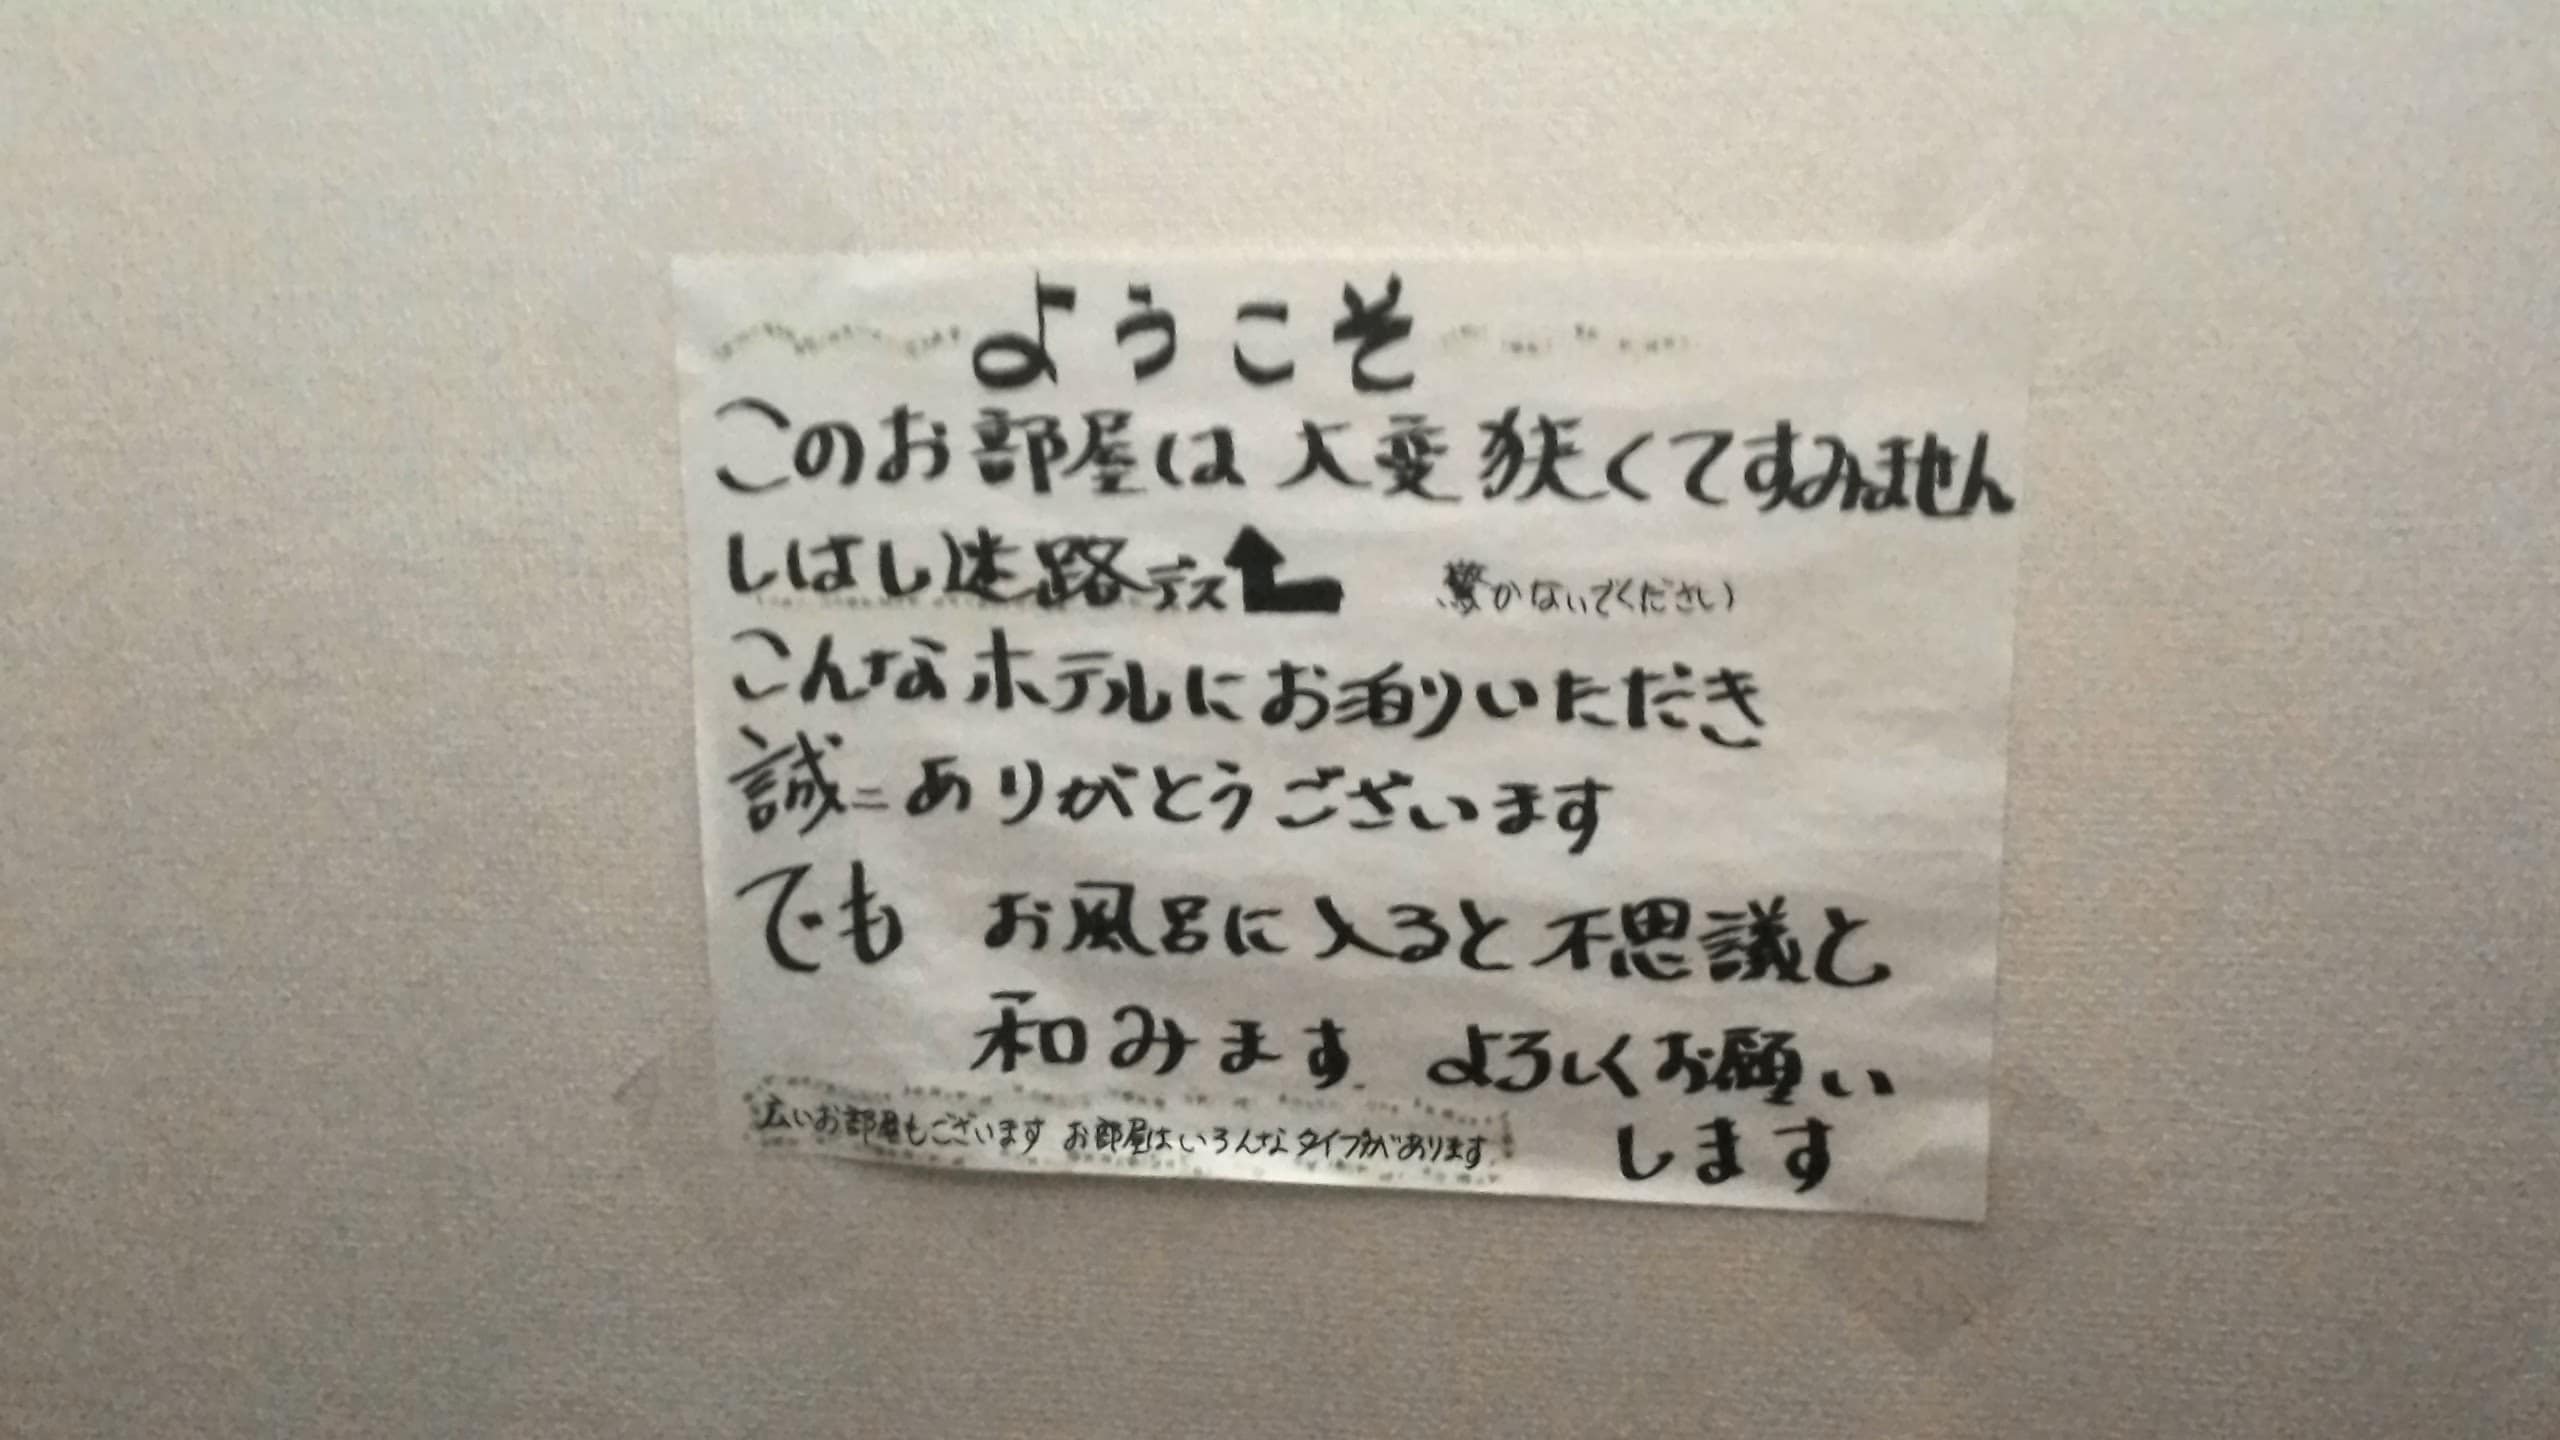 ようこそ
このお部屋は大変狭くてすみません
しばし迷路デス 驚かないでください)
こんなホテルにお泊りいただき
誠ニありがとうございます
でも お風呂に入ると不思議と
和みます よろしくお願い
します
広いお部屋もございます お部屋はいろんなタイプがあります